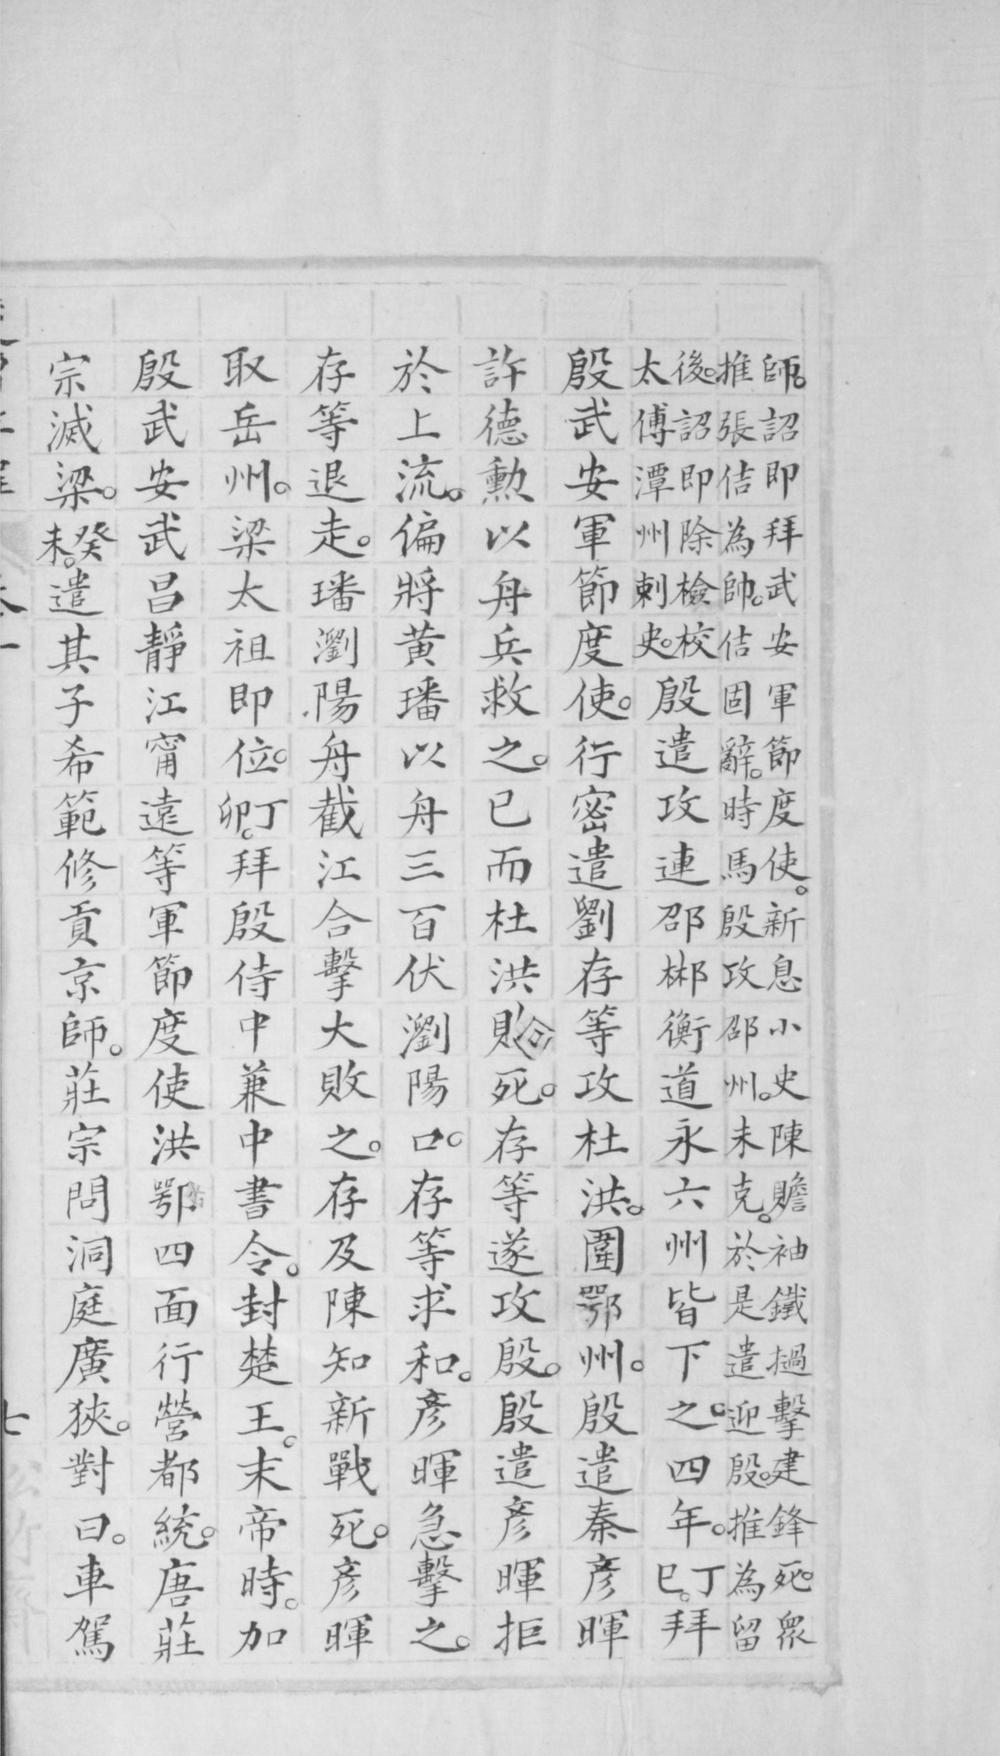 師。詔即拜武安軍節度使。新息小史陳贍袖鐵撾擊建鋒死。衆
推張佶為帥。佶固辭。時馬殷攻邵州。未克。於是遣迎殷。推為留
後。詔即除檢校
太傅潭州剌史。殷遣攻連邵郴衡道永六州皆下之。四年。丁巳。拜
殷武安軍節度使。行密遣劉存等攻杜洪。圍鄂州。殷遣秦彥暉
許德勳以舟兵救之。已而杜洪敗死。存等遂攻殷。殷遣彥暉拒
於上流。偏將黄璠以舟三百伏瀏陽口。存等求和。彥暉急擊之。
存等退走。璠瀏陽舟截江合擊大敗之。存及陳知新戰死。彥暉
取岳州。梁太祖即位。丁卯。拜殷侍中兼中書令。封楚王。末帝時。加
殷武安武昌靜江甯遠等軍節度使洪鄂四面行營都統。唐莊
宗滅梁。癸未。遣其子希範修貢京師。莊宗問洞庭廣狹。對曰。車駕
七